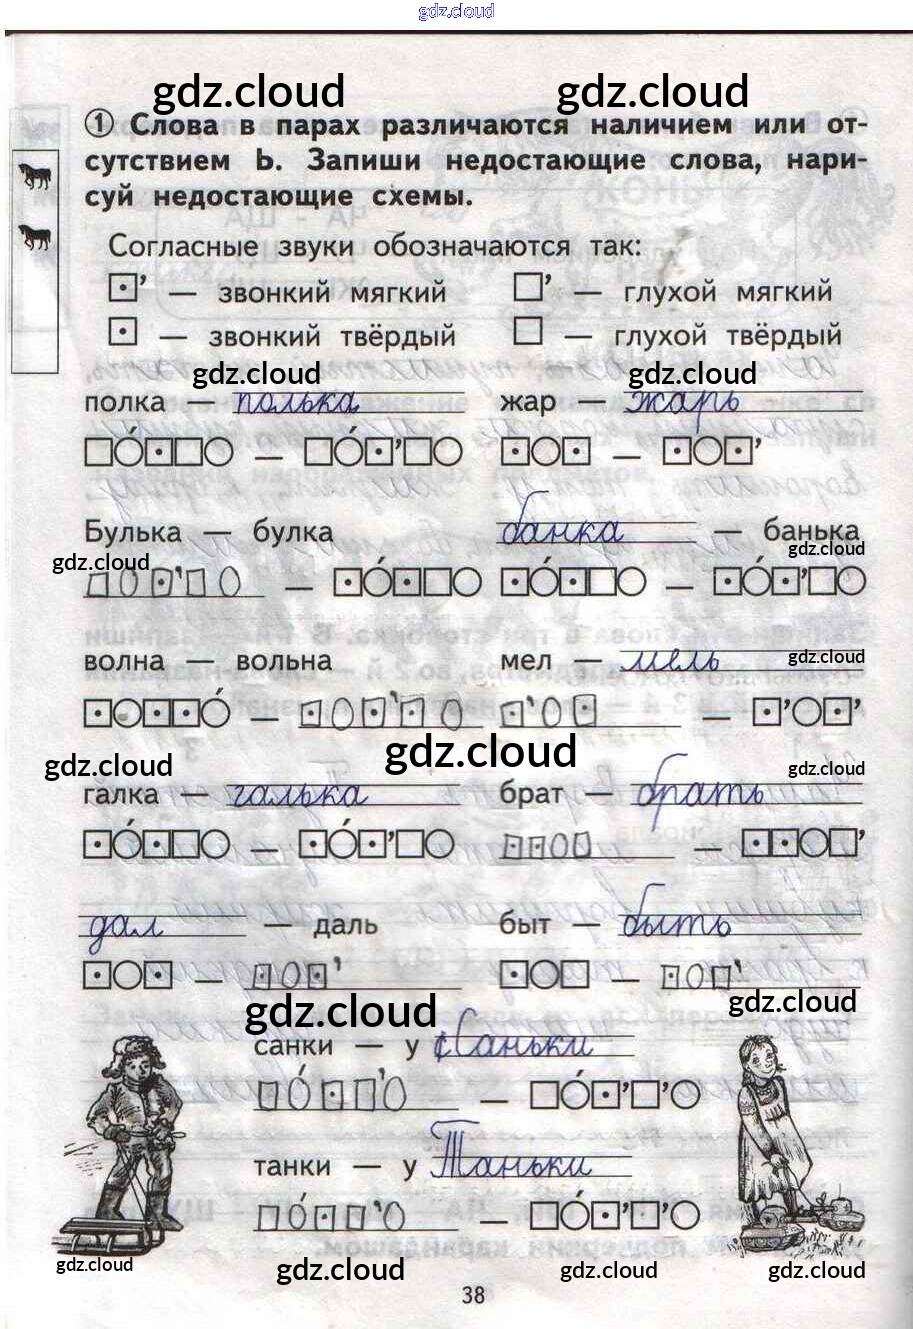 gdz.cloud
gdz.cloud gdz.cloud
1 Слова в парах различаются наличием или от-
сутствием Ь. Запиши недостающие слова, нари-
суй недостающие схемы.
Согласные звуки обозначаются так:
— звонкий мягкий — глухой мягкий
— звонкий твёрдый — глухой твёрдый
gdz.cloud gdz.cloud
полка — полька жар — жарь
Булька — булка банка — банька
gdz.cloud gdz.cloud
волна — вольна мел — мель gdz.cloud
gdz.cloud gdz.cloud gdz.cloud
галка — галька брат — брать
дал — даль быт — быть
gdz.cloud gdz.cloud
санки — у Саньки
танки — у Таньки
gdz.cloud gdz.cloud gdz.cloud gdz.cloud
38